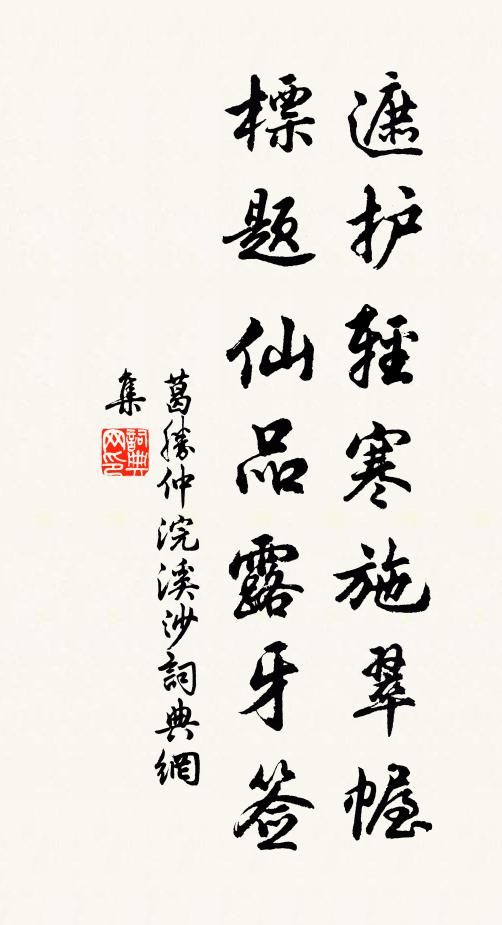 遮护輕寒施翠幄
標題仙品露牙签
葛勝仲浣溪沙詞典網
集
詞典网印